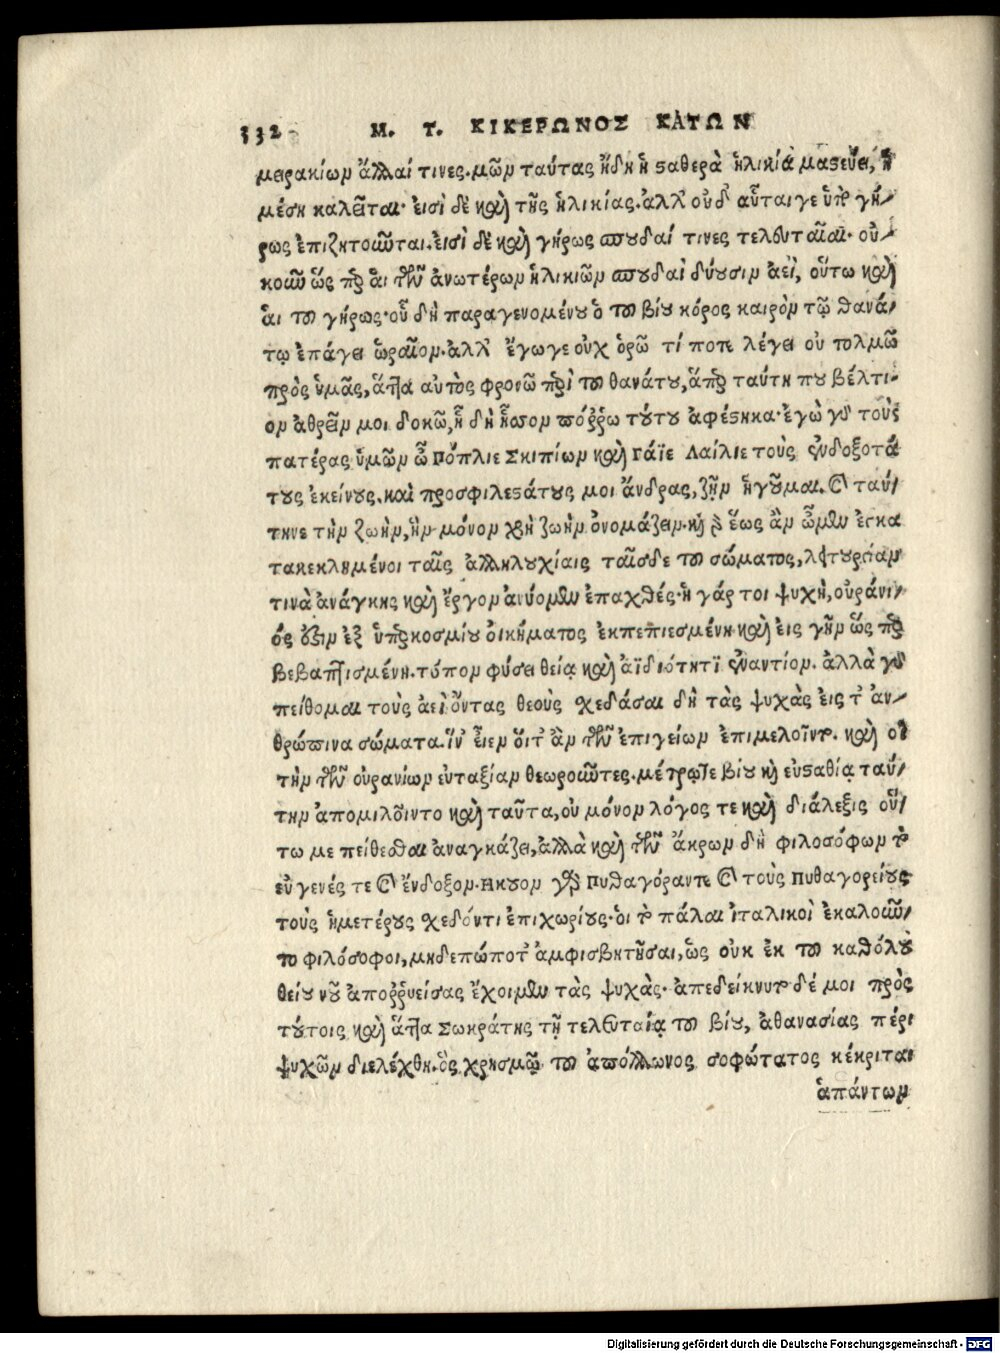 332 Μ. Τ. ΚΙΚΕΡΩΝΟΣ ΚΑΤΩΝ
μειρακίων ἄλλαί τινες. μῶν ταύτας ἤδη ἡ σταθερὰ ἡλικία μαστεύει, ἣ
μέση καλεῖται· εἰσὶ δὲ καὶ τῆς ἡλικίας. ἀλλ' οὐδ' αὗταί γε ὑπὸ γή-
ρως ἐπιζητοῦνται. εἰσὶ δὲ καὶ γήρως σπουδαί τινες τελευταῖαι· οὐ-
κοῦν ὥς περ ἁι τῶν ἀνωτέρων ἡλικιῶν σπουδαὶ δύουσιν ἀεὶ, οὕτω καὶ
ἁι τοῦ γήρως· οὗ δὴ παραγενομένου ὁ τοῦ βίου κόρος καιρὸν τῷ θανά-
τῳ ἐπάγει ὡραῖον. ἀλλ' ἔγωγε οὐχ ὁρῶ τί ποτε λέγειν οὐ τολμῶ
πρὸς ὑμᾶς, ἅττα αὐτὸς φρονῶ περὶ τοῦ θανάτου, ἅπερ ταύτῃ που βέλτι-
ον ἀθρεῖν μοι δοκῶ, ᾗ δὴ ἧττον πόῤῥω τούτου ἀφέστηκα· ἐγὼ γὰρ τοὺς
πατέρας ὑμῶν ὦ Πόπλιε Σκιπίων καὶ Γάϊε Λαίλιε τοὺς ἐνδοξοτά
τους ἐκείνους, καὶ προσφιλεστάτους μοι ἄνδρας, ζῆν ἡγοῦμαι. καὶ ταύ-
την τὴν ζωὴν, ἣν μόνον χρὴ ζωὴν ὀνομάζειν. καὶ γὰρ ἕως ἂν ὦμεν ἐγκα
τακεκλυμένοι ταῖς ἀλληλουχίαις ταῖσδε τοῦ σώματος, λειτουργίαν
τινὰ ἀνάγκης καὶ ἔργον ἀνύομεν ἐπαχθές· ἡ γάρ τοι ψυχὴ, οὐράνι-
ός ἐστιν ἐξ ὑπερκοσμίου οἰκήματος ἐκπεπιεσμένη καὶ εἰς γῆν ὥς περ
βεβαπτισμένη. τόπον φύσει θείᾳ καὶ ἀϊδιότητι ἐναντίον. ἀλλὰ γὰρ
πείθομαι τοὺς ἀεὶ ὄντας θεοὺς σχεδάσαι δὴ τὰς ψυχὰς εἰς τ' ἀν-
θρώπινα σώματα. ἵν' εἶεν ὅιτ' ἂν τῶν ἐπιγείων ἐπιμελοῖντο. καὶ οἳ
τὴν τῶν οὐρανίων εὐταξίαν θεωροῦντες. μέτρῳ τε βίου καὶ εὐσταθίᾳ ταύ-
την ἀπομιλοῖντο καὶ ταῦτα, οὐ μόνον λόγος τε καὶ διάλεξις οὕ-
τω με πείθεσθαι ἀναγκάζει, ἀλλὰ καὶ τῶν ἄκρων δὴ φιλοσόφων τὸ
εὐγενές τε καὶ ἔνδοξον. Ηκουον γὰρ Πυθαγόραντε καὶ τοὺς Πυθαγορείους
τοὺς ἡμετέρους σχεδόντι ἐπιχωρίους· ὁι τὸ πάλαι ἰταλικοὶ ἐκαλοῦν-
το φιλόσοφοι, μηδεπώποτ' ἀμφισβητῆσαι, ὡς οὐκ ἐκ τοῦ καθόλου
θείου νοῦ ἀποῤῥυείσας ἔχοιμεν τὰς ψυχὰς· ἀπεδείκνυτο δέ μοι πρὸς
τούτοις καὶ ἅττα Σωκράτης τῇ τελευταίᾳ τοῦ βίου, ἀθανασίας πέρι
ψυχῶν διελέχθη. ὃς χρησμῷ τοῦ ἀπόλλωνος σοφώτατος κέκριται
ἁπάντων
Digitalisierung gefördert durch die Deutsche Forschungsgemeinschaft - DFG